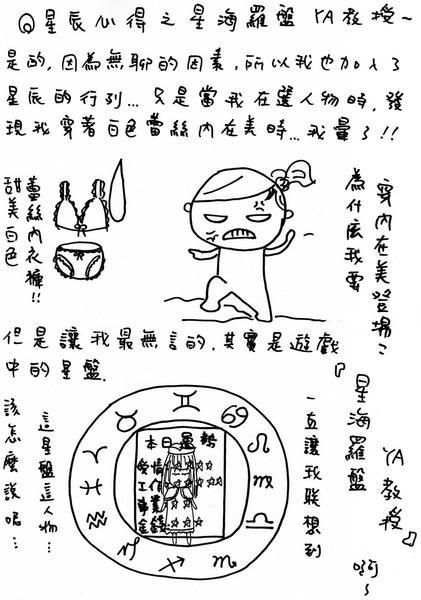 ◎星辰心得之星海羅盤 YA教授~
是的,因為無聊的因素,所以我也加入了
星辰的行列...只是當我在選人物時,發
現我穿著白色蕾絲內在美時...我暈了!!
為什麼我要
穿內在美登場?
蕾絲內衣褲!!
甜美白色
但是讓我最無言的,其實是遊戲
中的星盤.
『星海羅盤
YA教授』
啊~
一直讓我聯想到
本日運勢
愛情☆☆☆☆
工作☆☆☆☆
事業☆☆☆
金錢☆☆☆
這星盤這人物...
該怎麼說呢...